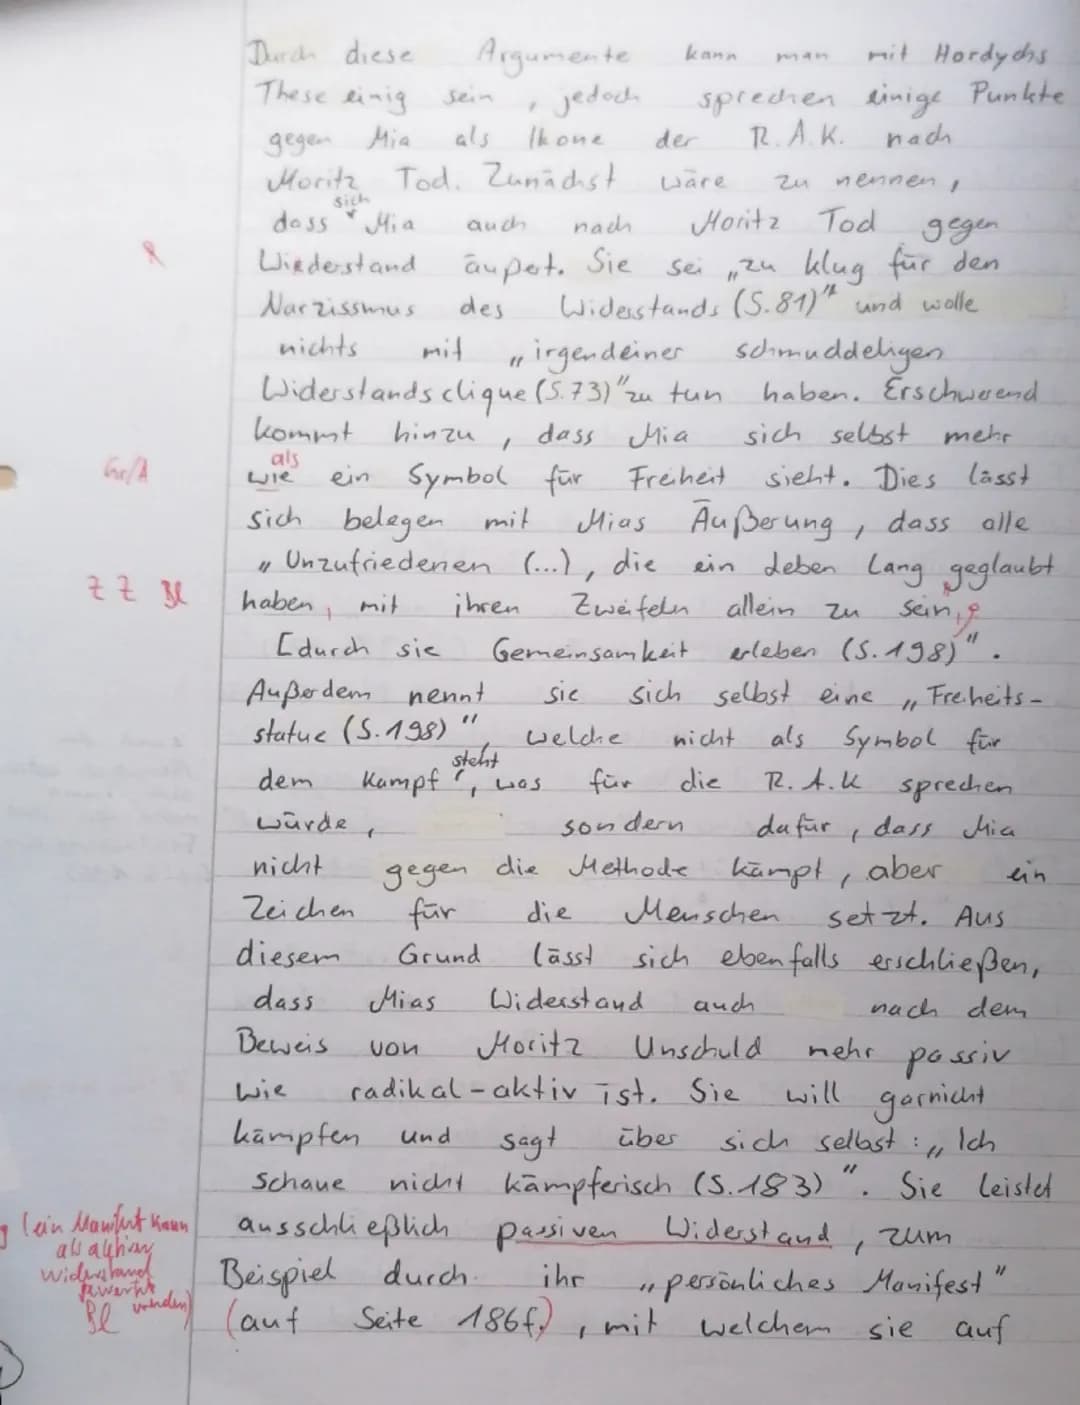 Durch diese Argumente kann man mit Hordychs
These einig sein, jedoch sprechen einige Punkte
gegen Mia als Ikone der R.A.K. nach
Moritz Tod. Zunächst wäre zu nennen,
sich
dass Mia auch nach Moritz Tod gegen
R Wiederstand äußert. Sie sei „zu klug für den
Narzissmus des Widerstands (S.81)" und wolle
nichts mit „irgendeiner schmuddeligen
Widerstandsclique (S.73)" zu tun haben. Erschwerend
kommt hinzu, dass Mia sich selbst mehr
als
Gr/A wie ein Symbol für Freiheit sieht. Dies lässt
sich belegen mit Mias Äußerung, dass alle
„Unzufriedenen (...), die ein Leben lang geglaubt
Z Z Bl haben, mit ihren Zweifeln allein zu sein,
[durch sie Gemeinsamkeit erleben (S.198)".
Außerdem nennt sie sich selbst eine „Freiheits-
statue (S.198)", welche nicht als Symbol für
steht
dem Kampf, was für die R.A.K sprechen
würde, sondern dafür, dass Mia
nicht gegen die Methode kämpt, aber ein
Zeichen für die Menschen setzt. Aus
diesem Grund lässt sich ebenfalls erschließen,
dass Mias Widerstand auch nach dem
Beweis von Moritz Unschuld mehr passiv
wie radikal-aktiv ist. Sie will garnicht
kämpfen und sagt über sich selbst: „Ich
schaue nicht kämpferisch (S.183)". Sie leistet
(ein Manifest kann
ausschließlich passiven Widerstand, zum
als aktiver
Widerstand
Beispiel durch ihr „persönliches Manifest"
gewertet
werden)
Bl
(auf Seite 186f.), mit welchem sie auf